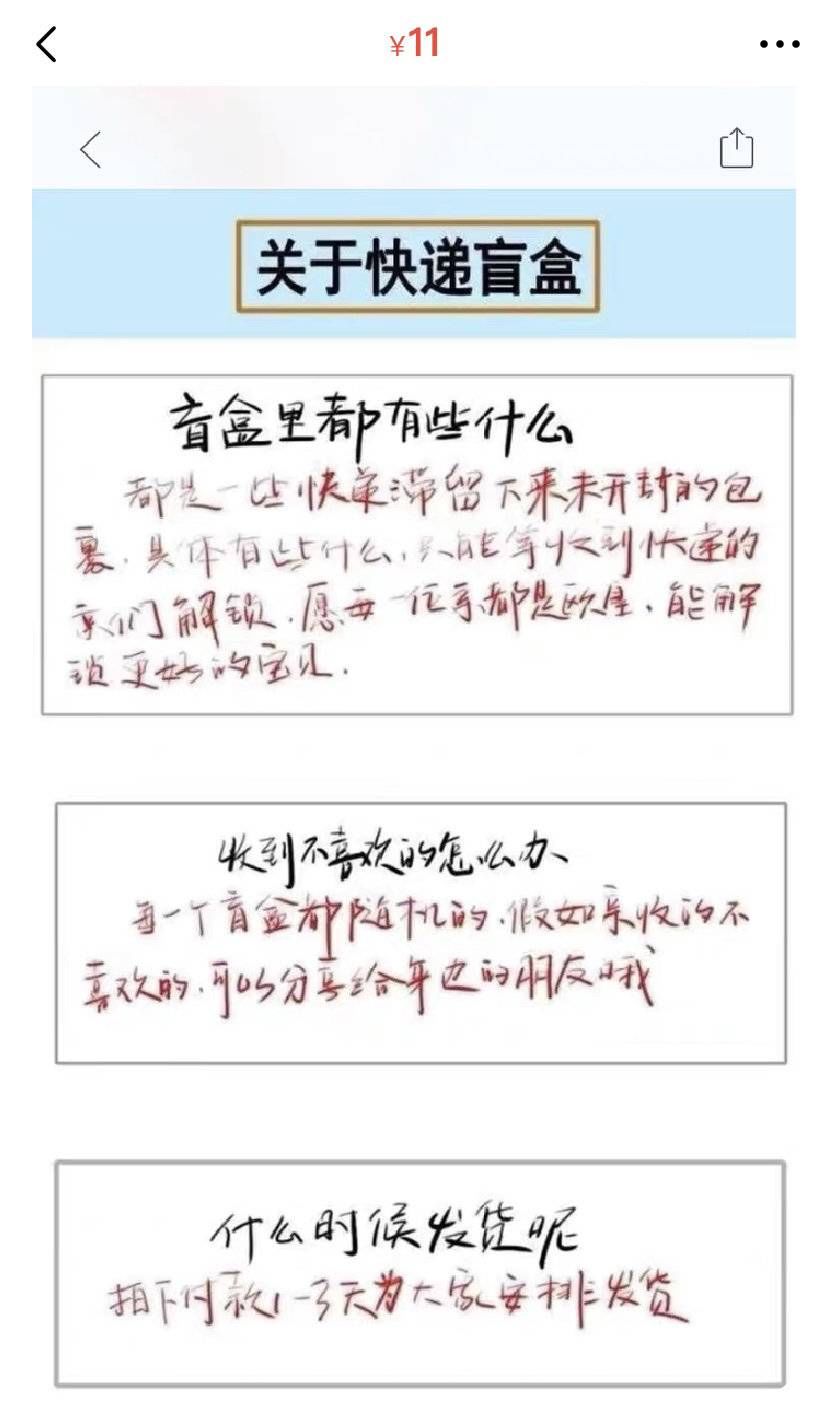 ¥11
关于快递盲盒
盲盒里都有些什么
都是一些快递滞留下来未开封的包
裹.具体有些什么,只能等收到快递的
亲们解锁.愿每一位亲都是欧皇.能解
锁更好的宝贝.
收到不喜欢的怎么办
每一个盲盒都随机的.假如亲收到不
喜欢的.可以分享给身边的朋友哦
什么时候发货呢
拍下付款1-3天为大家安排发货